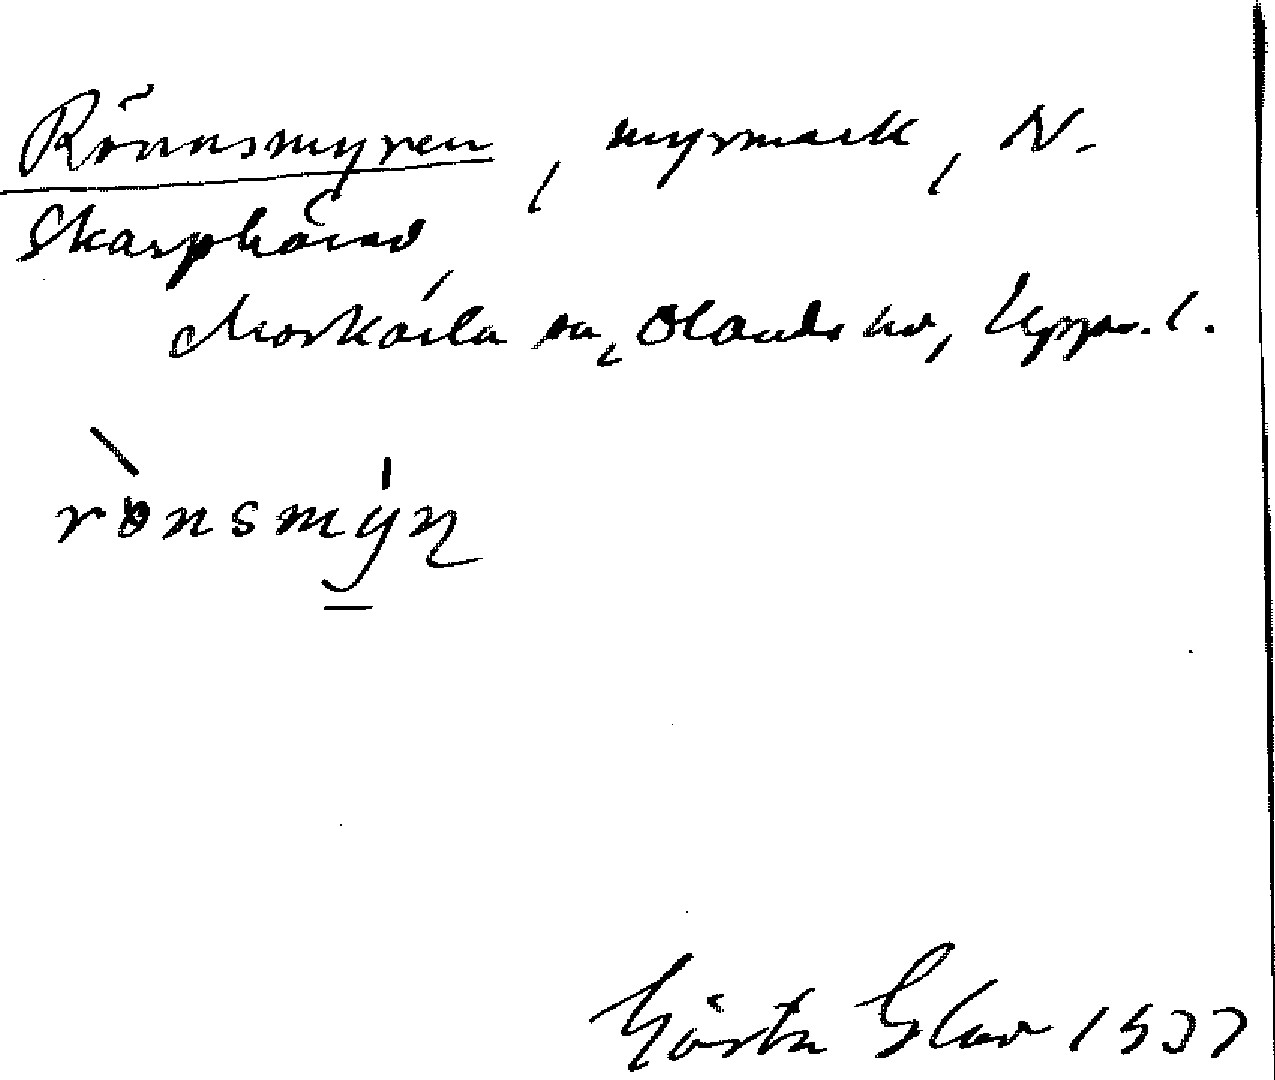 Rönnsmyren, myrmark, N.
Skarpbäcad
Morkarla sn, Olands hd, Upps. l.
rönsmýn
Gösta Elow 1937